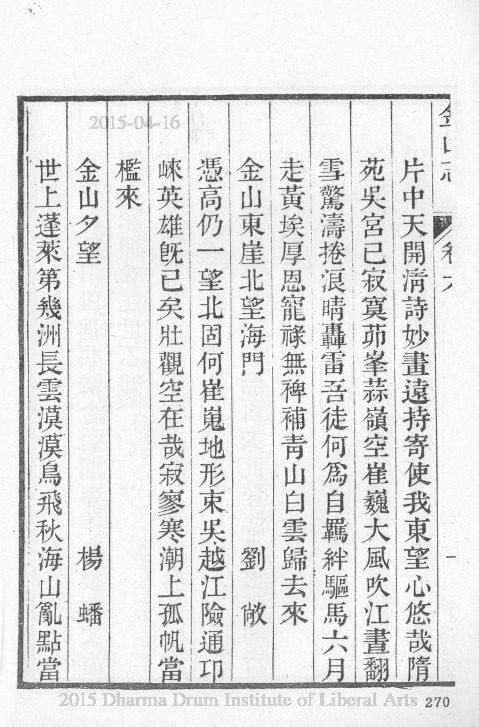 金山志 卷六
片中天開清詩妙畫遠持寄使我東望心悠哉隋
苑吳宮已寂寞茆峯蒜嶺空崔巍大風吹江晝翻
雪驚濤捲浪晴轟雷吾徒何爲自羈絆驅馬六月
走黃埃厚恩寵祿無裨補靑山白雲歸去來
金山東崖北望海門 劉敞
憑高仍一望北固何崔嵬地形束吳越江險通卭
崍英雄旣已矣壯觀空在哉寂寥寒潮上孤帆當
檻來
金山夕望 楊蟠
世上蓬萊第幾洲長雲漠漠鳥飛秋海山亂點當
2015-04-16
2015 Dharma Drum Institute of Liberal Arts
270